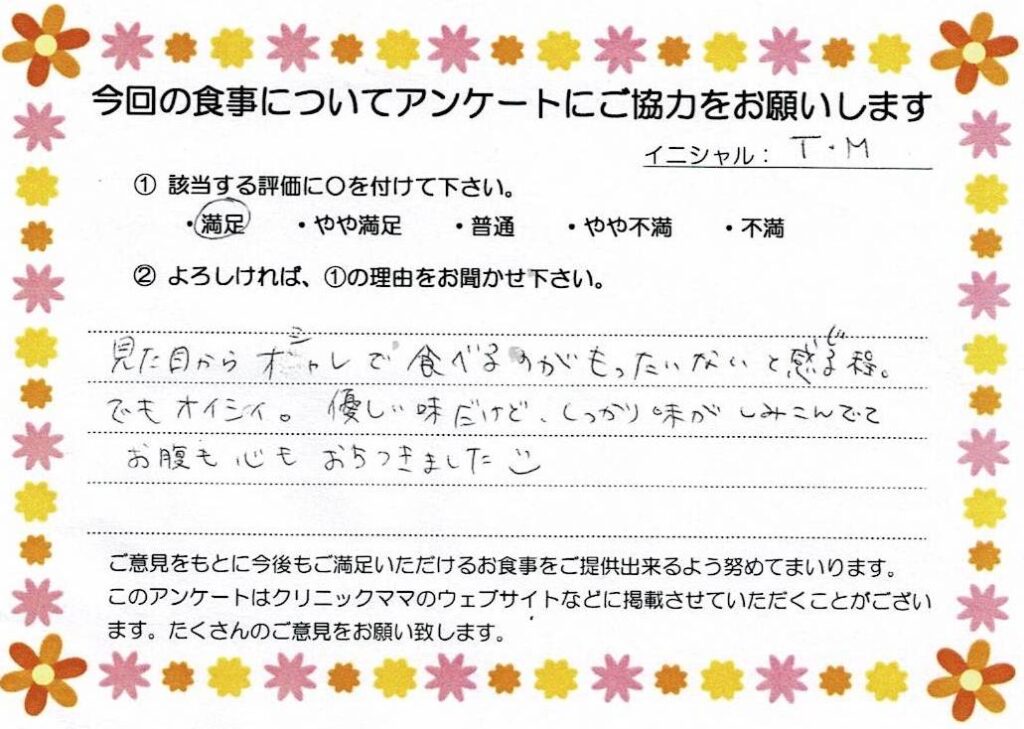 今回の食事についてアンケートにご協力をお願いします
イニシャル： T・M
① 該当する評価に〇を付けて下さい。
・満足 ・やや満足 ・普通 ・やや不満 ・不満
② よろしければ、①の理由をお聞かせ下さい。
見た目からオシャレで食べるのがもったいないと感じる程。
でもオイシイ。優しい味だけど、しっかり味がしみこんでて
お腹も心もおちつきました
ご意見をもとに今後もご満足いただけるお食事をご提供出来るよう努めてまいります。
このアンケートはクリニックママのウェブサイトなどに掲載させていただくことがござい
ます。たくさんのご意見をお願い致します。